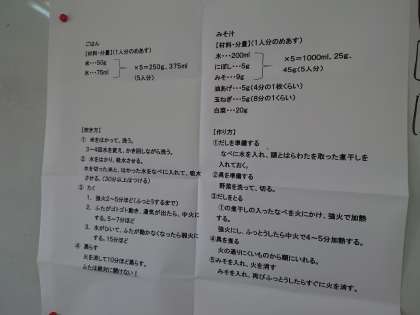 ごはん
【材料・分量】(1人分のめあす)
米…50g
水…75ml
×5=250g、375ml
(5人分)
【炊き方】
① 米をはかって、洗う。
3～4回水を変え、かき回しながら洗う。
② 水をはかり、吸水させる。
水を切った米と、はかった水をなべに入れて、吸水
させる。(30分以上はつける)
③ たく
1、強火2～5分ほど(ふっとうするまで)
2、ふたがゴトゴト動き、湯気が出たら、中火に
する。5～7分
3、水がひいて、ふたが動かなくなったら弱火に
する。15分ほど
④ 蒸らす
火を消して10分ほど蒸らす。
ふたは絶対に開けない!
みそ汁
【材料・分量】(1人分のめあす)
水…200ml
にぼし…5g
みそ…9g
×5=1000ml、25g、
45g(5人分)
油あげ…5g(4分の1枚くらい)
玉ねぎ…5g(8分の1くらい)
白菜…20g
【作り方】
①だしを準備する
なべに水を入れ、頭とはらわたを取った煮干しを
入れておく。
②具を準備する
野菜を洗って、切る。
③だしをとる
①の煮干しの入ったなべを火にかけ、強火で加熱
する。
強火にし、ふっとうしたら中火で4～5分加熱する。
④具を煮る
火の通りにくいものから順にいれる。
⑤みそを入れ、火を消す
みそを入れ、再びふっとうしたらすぐに火を消す。